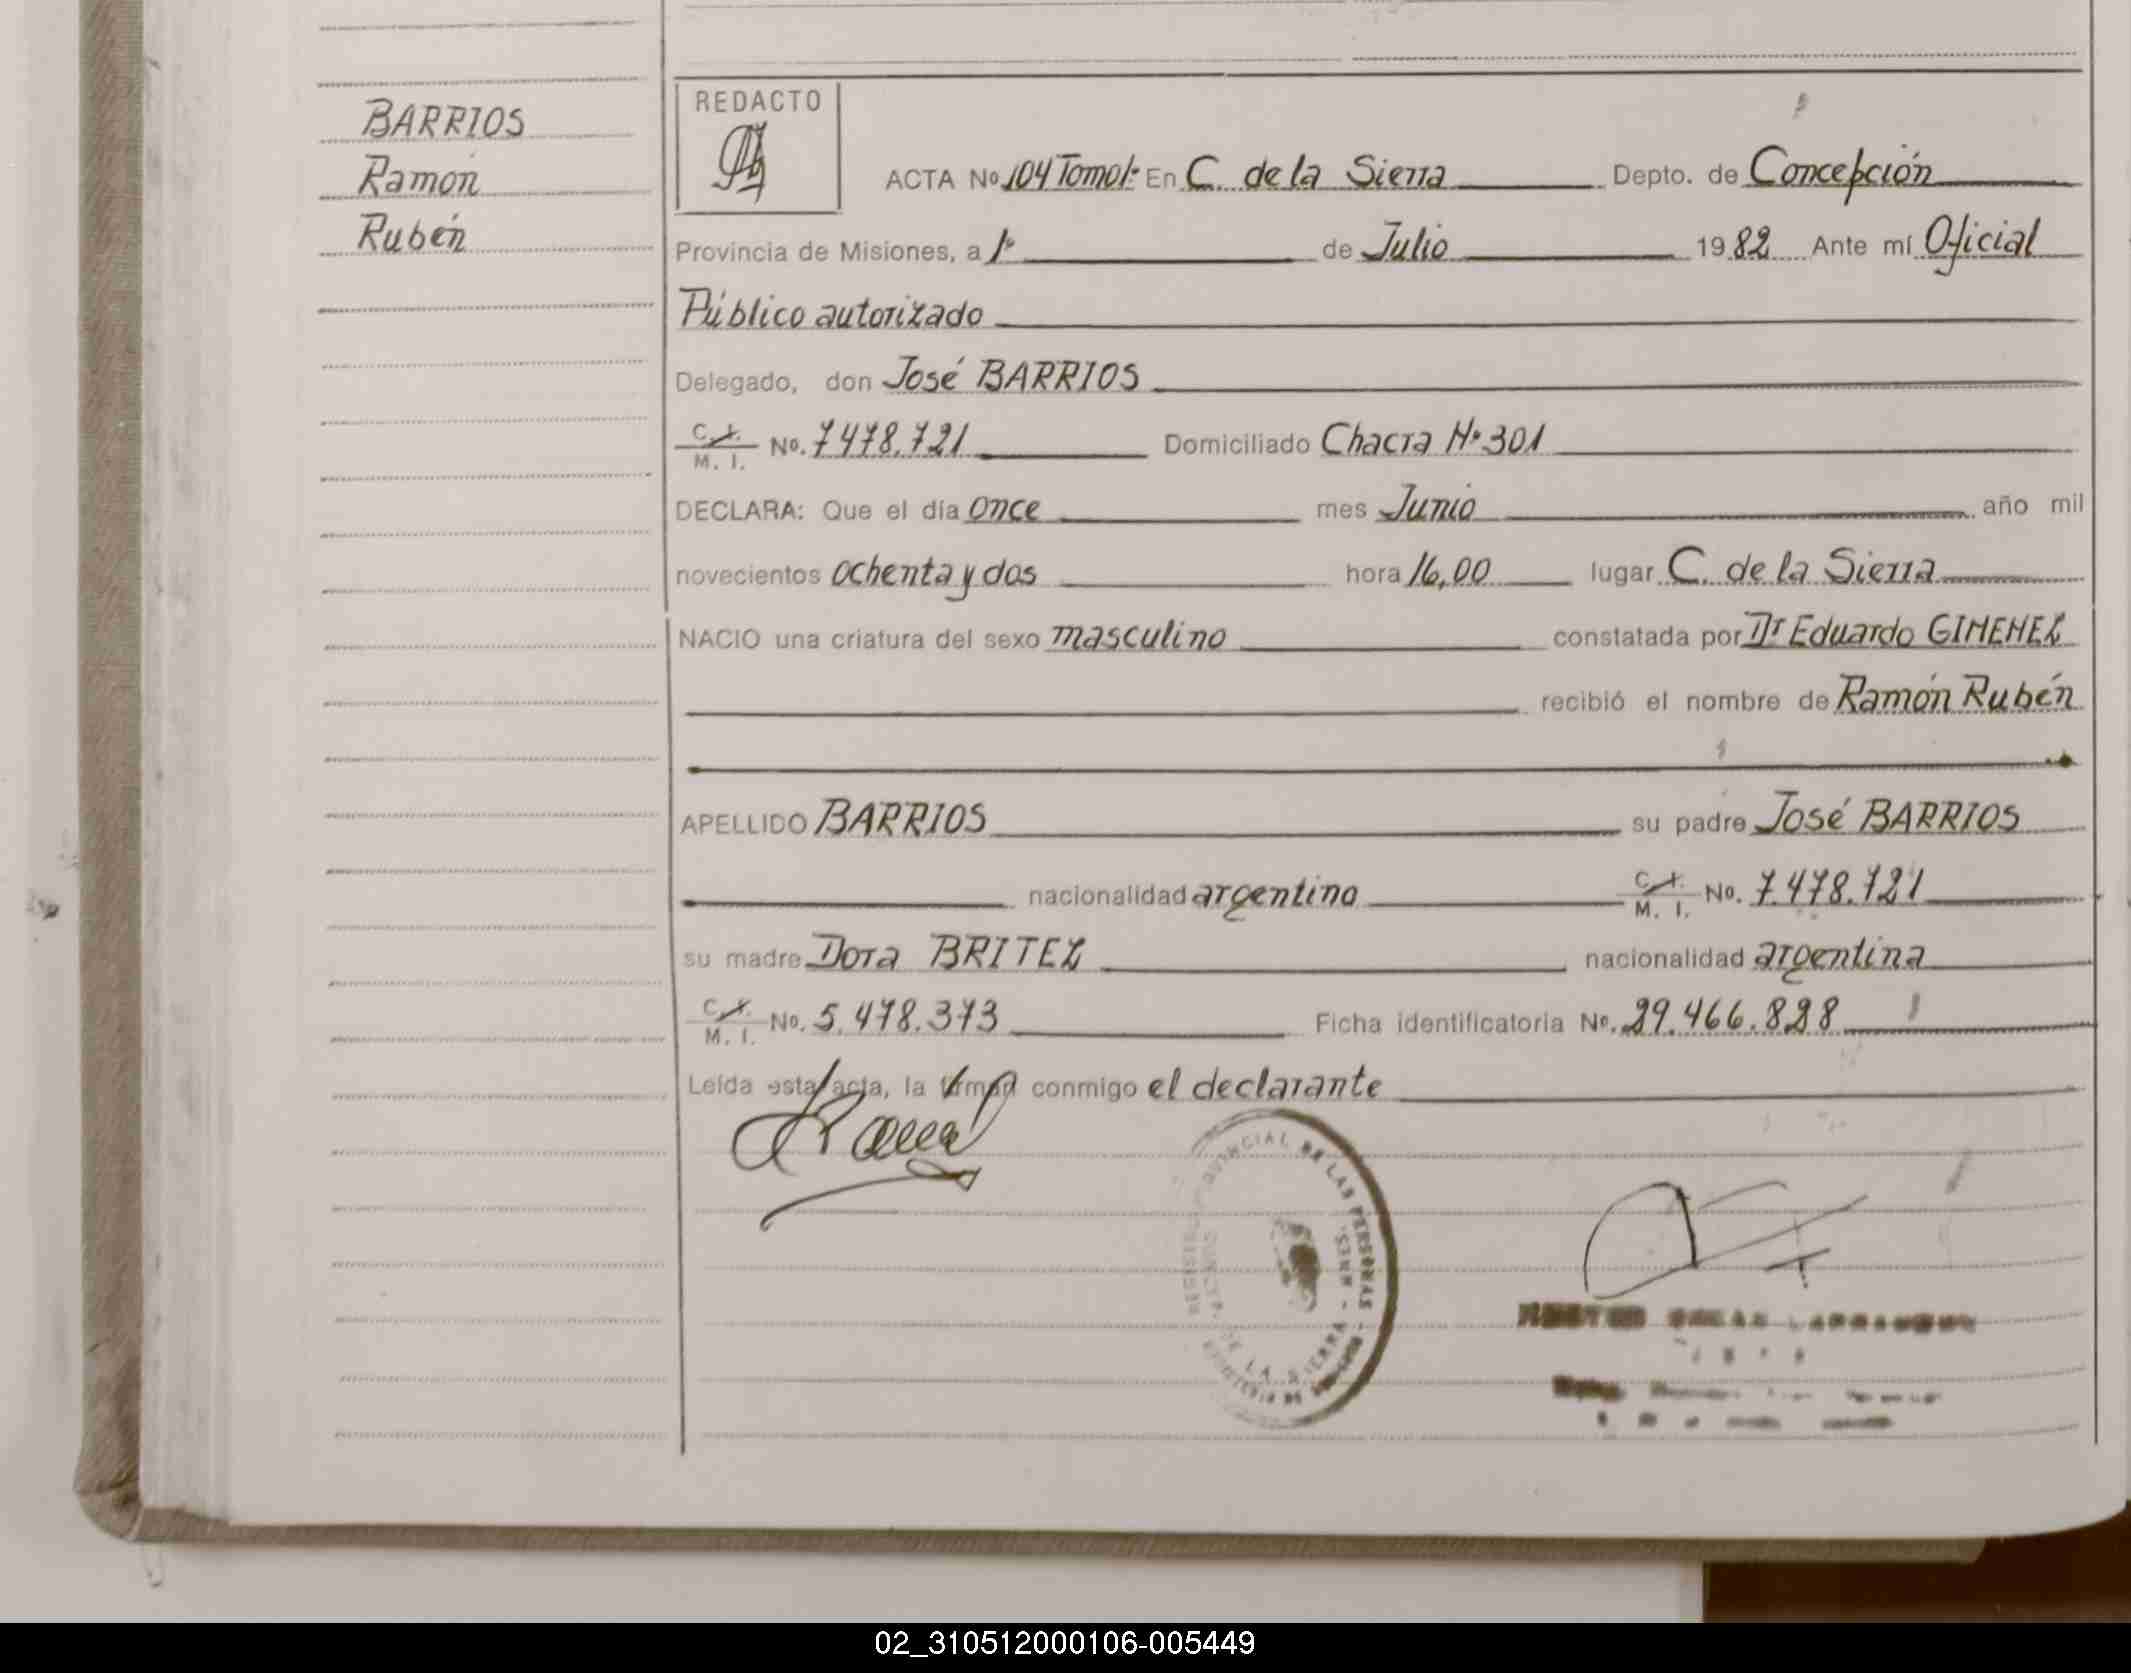 BARRIOS
Ramón
Rubén
REDACTO
ACTA No 104 Tomo 1º En C. de la Sierra Depto. de Concepción
Provincia de Misiones, a 1º de Julio 1982 Ante mí Oficial
Público autorizado
Delegado, don José BARRIOS
C. I. M. I. No. 7478.721 Domiciliado Chacra Nº 301
DECLARA: Que el día once mes Junio año mil
novecientos ochenta y dos hora 16,00 lugar C. de la Sierra
NACIO una criatura del sexo masculino constatada por Dr Eduardo GIMENEZ
recibió el nombre de Ramón Rubén
APELLIDO BARRIOS su padre José BARRIOS
nacionalidad argentino C. I. M. I. No. 7.478.721
su madre Dora BRITEZ nacionalidad argentina
C. I. M. I. No. 5.478.373 Ficha identificatoria No. 29.466.828
Leída esta acta, la firman conmigo el declarante
PROVINCIAL DE LAS PERSONAS
DE LA SIERRA - MNES.
02_310512000106-005449